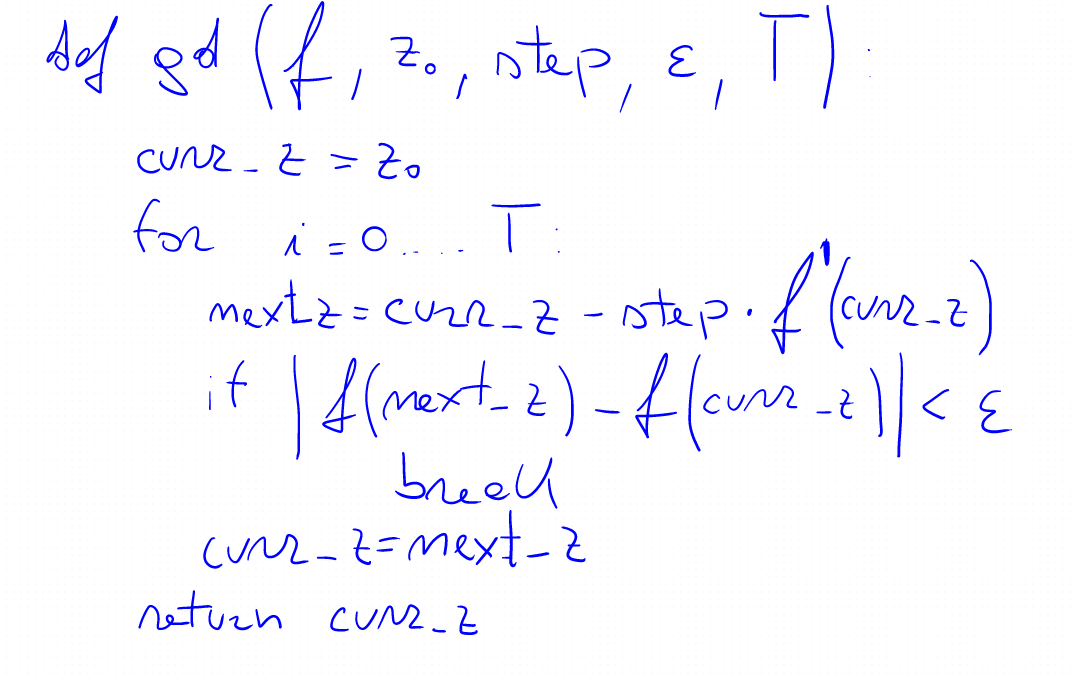 def gd (f, z₀, step, ε, T):
curr_z = z₀
for i = 0.... T:
next z = curr_z - step · f'(curr_z)
if |f(next_z) - f(curr_z)| < ε
break
curr_z = next_z
return curr_z